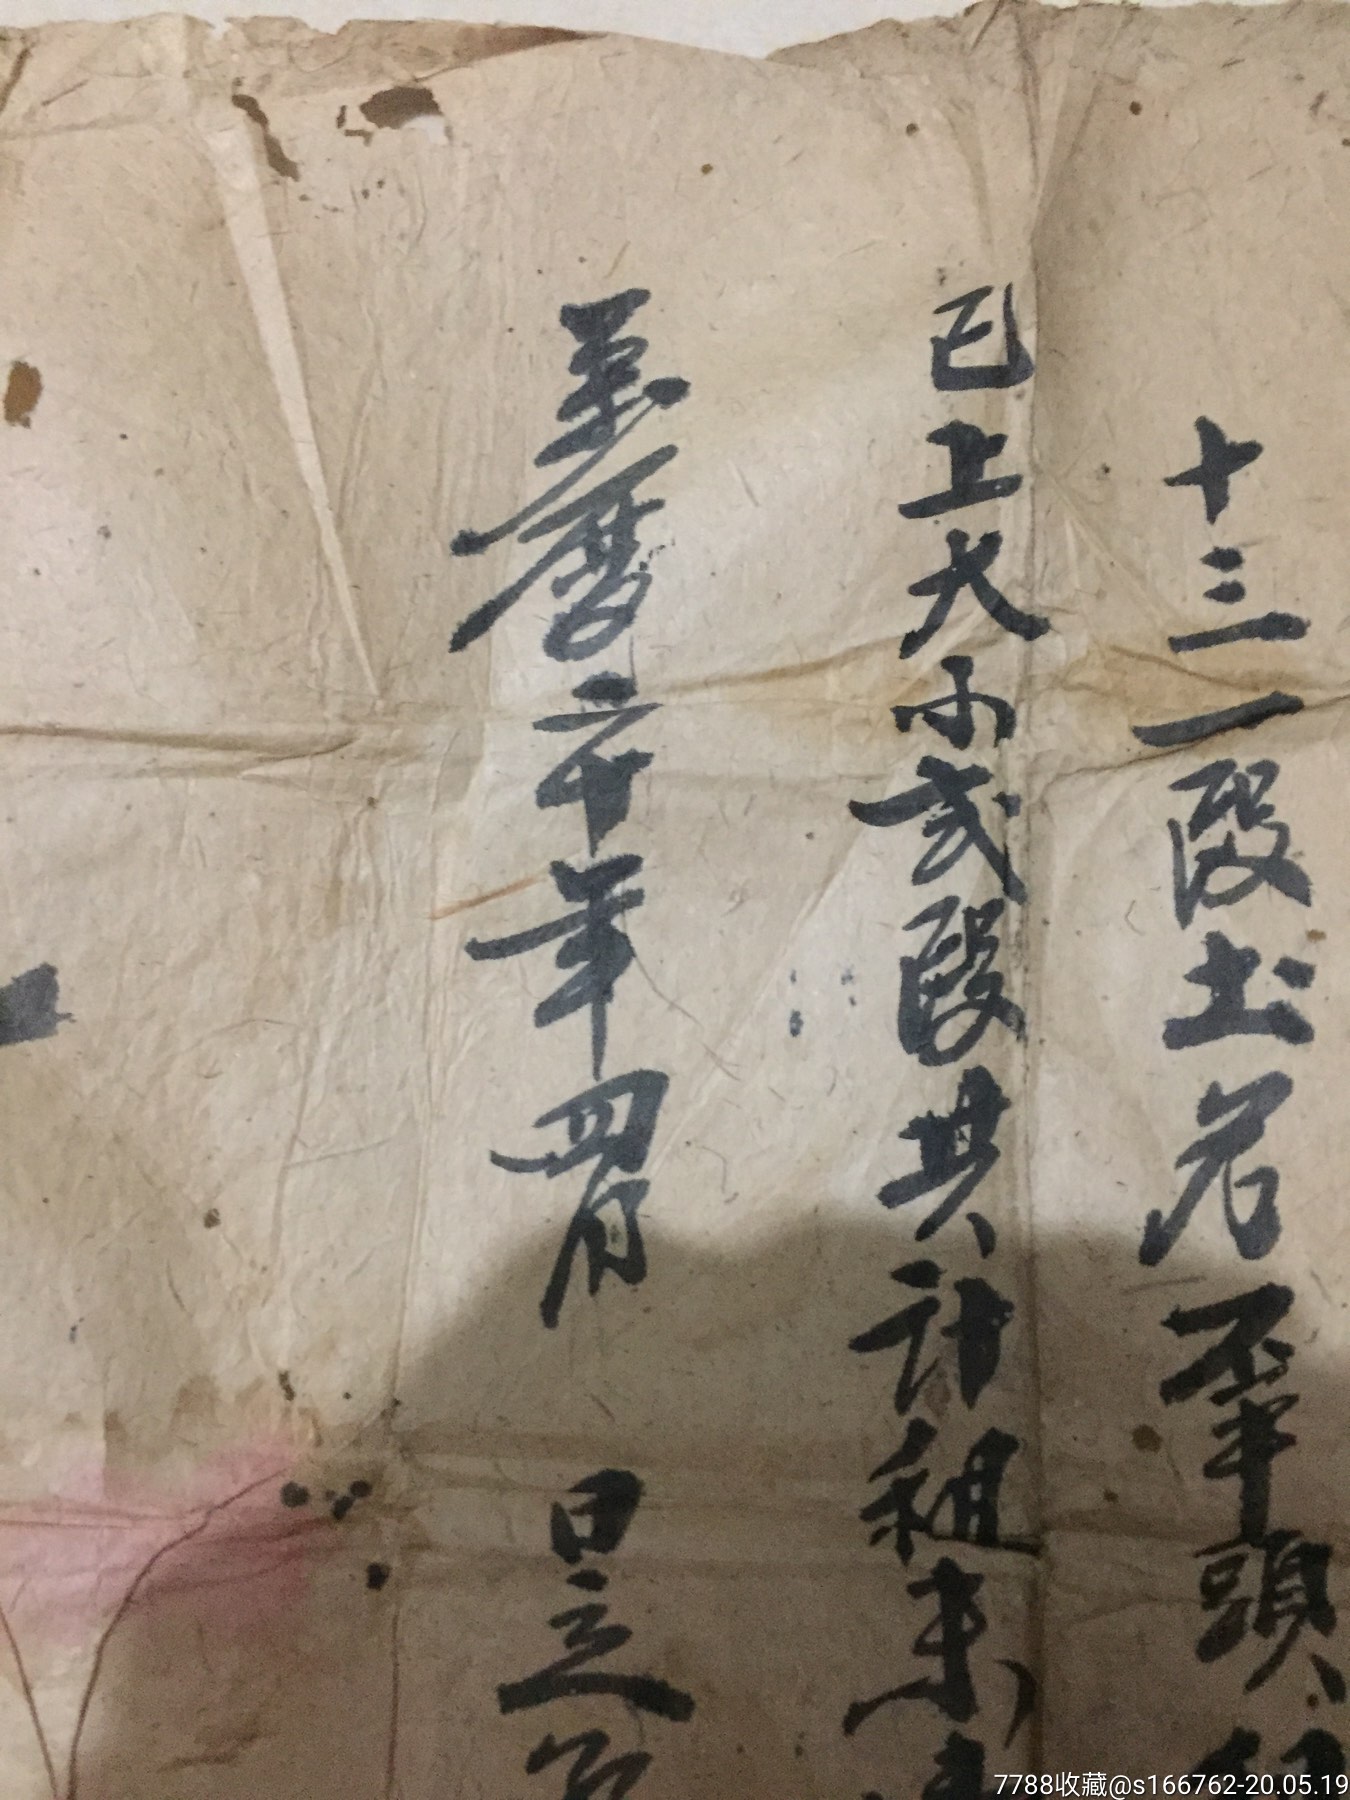 十三一段土名坙牽頭
已上大小弍段共計租
萬曆二十年四月 日立
7788收藏@s166762-20.05.19